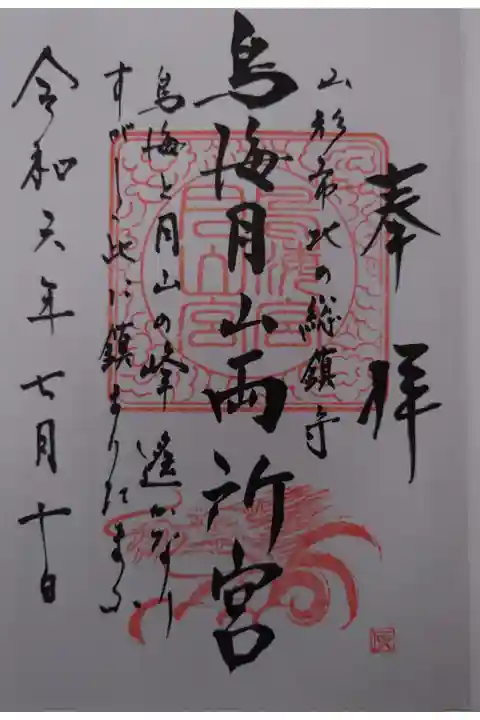 奉拝
山形市北の総鎮守
鳥海月山両所宮
鳥海と月山の峰遥かなり
すがしく此に鎮まりたまふ
令和六年七月十日